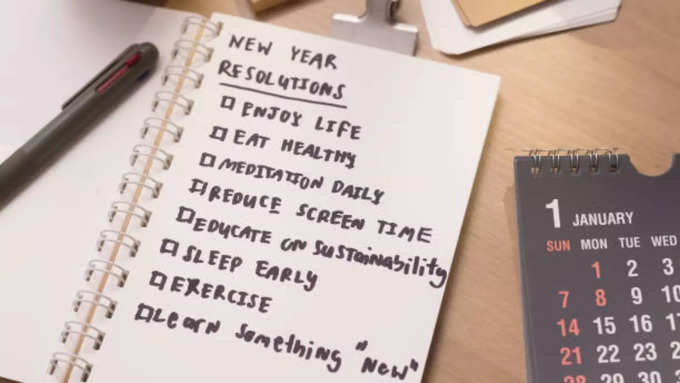 NEW YEAR
RESOLUTIONS
ENJOY LIFE
EAT HEALTHY
MEDITATION DAILY
REDUCE SCREEN TIME
EDUCATE ON SUSTAINABILITY
SLEEP EARLY
EXERCISE
LEARN SOMETHING "NEW"
1 JANUARY
SUN MON TUE WED
1 2 3
7 8 9 10
14 15 16 17
21 22 23
28 29 30